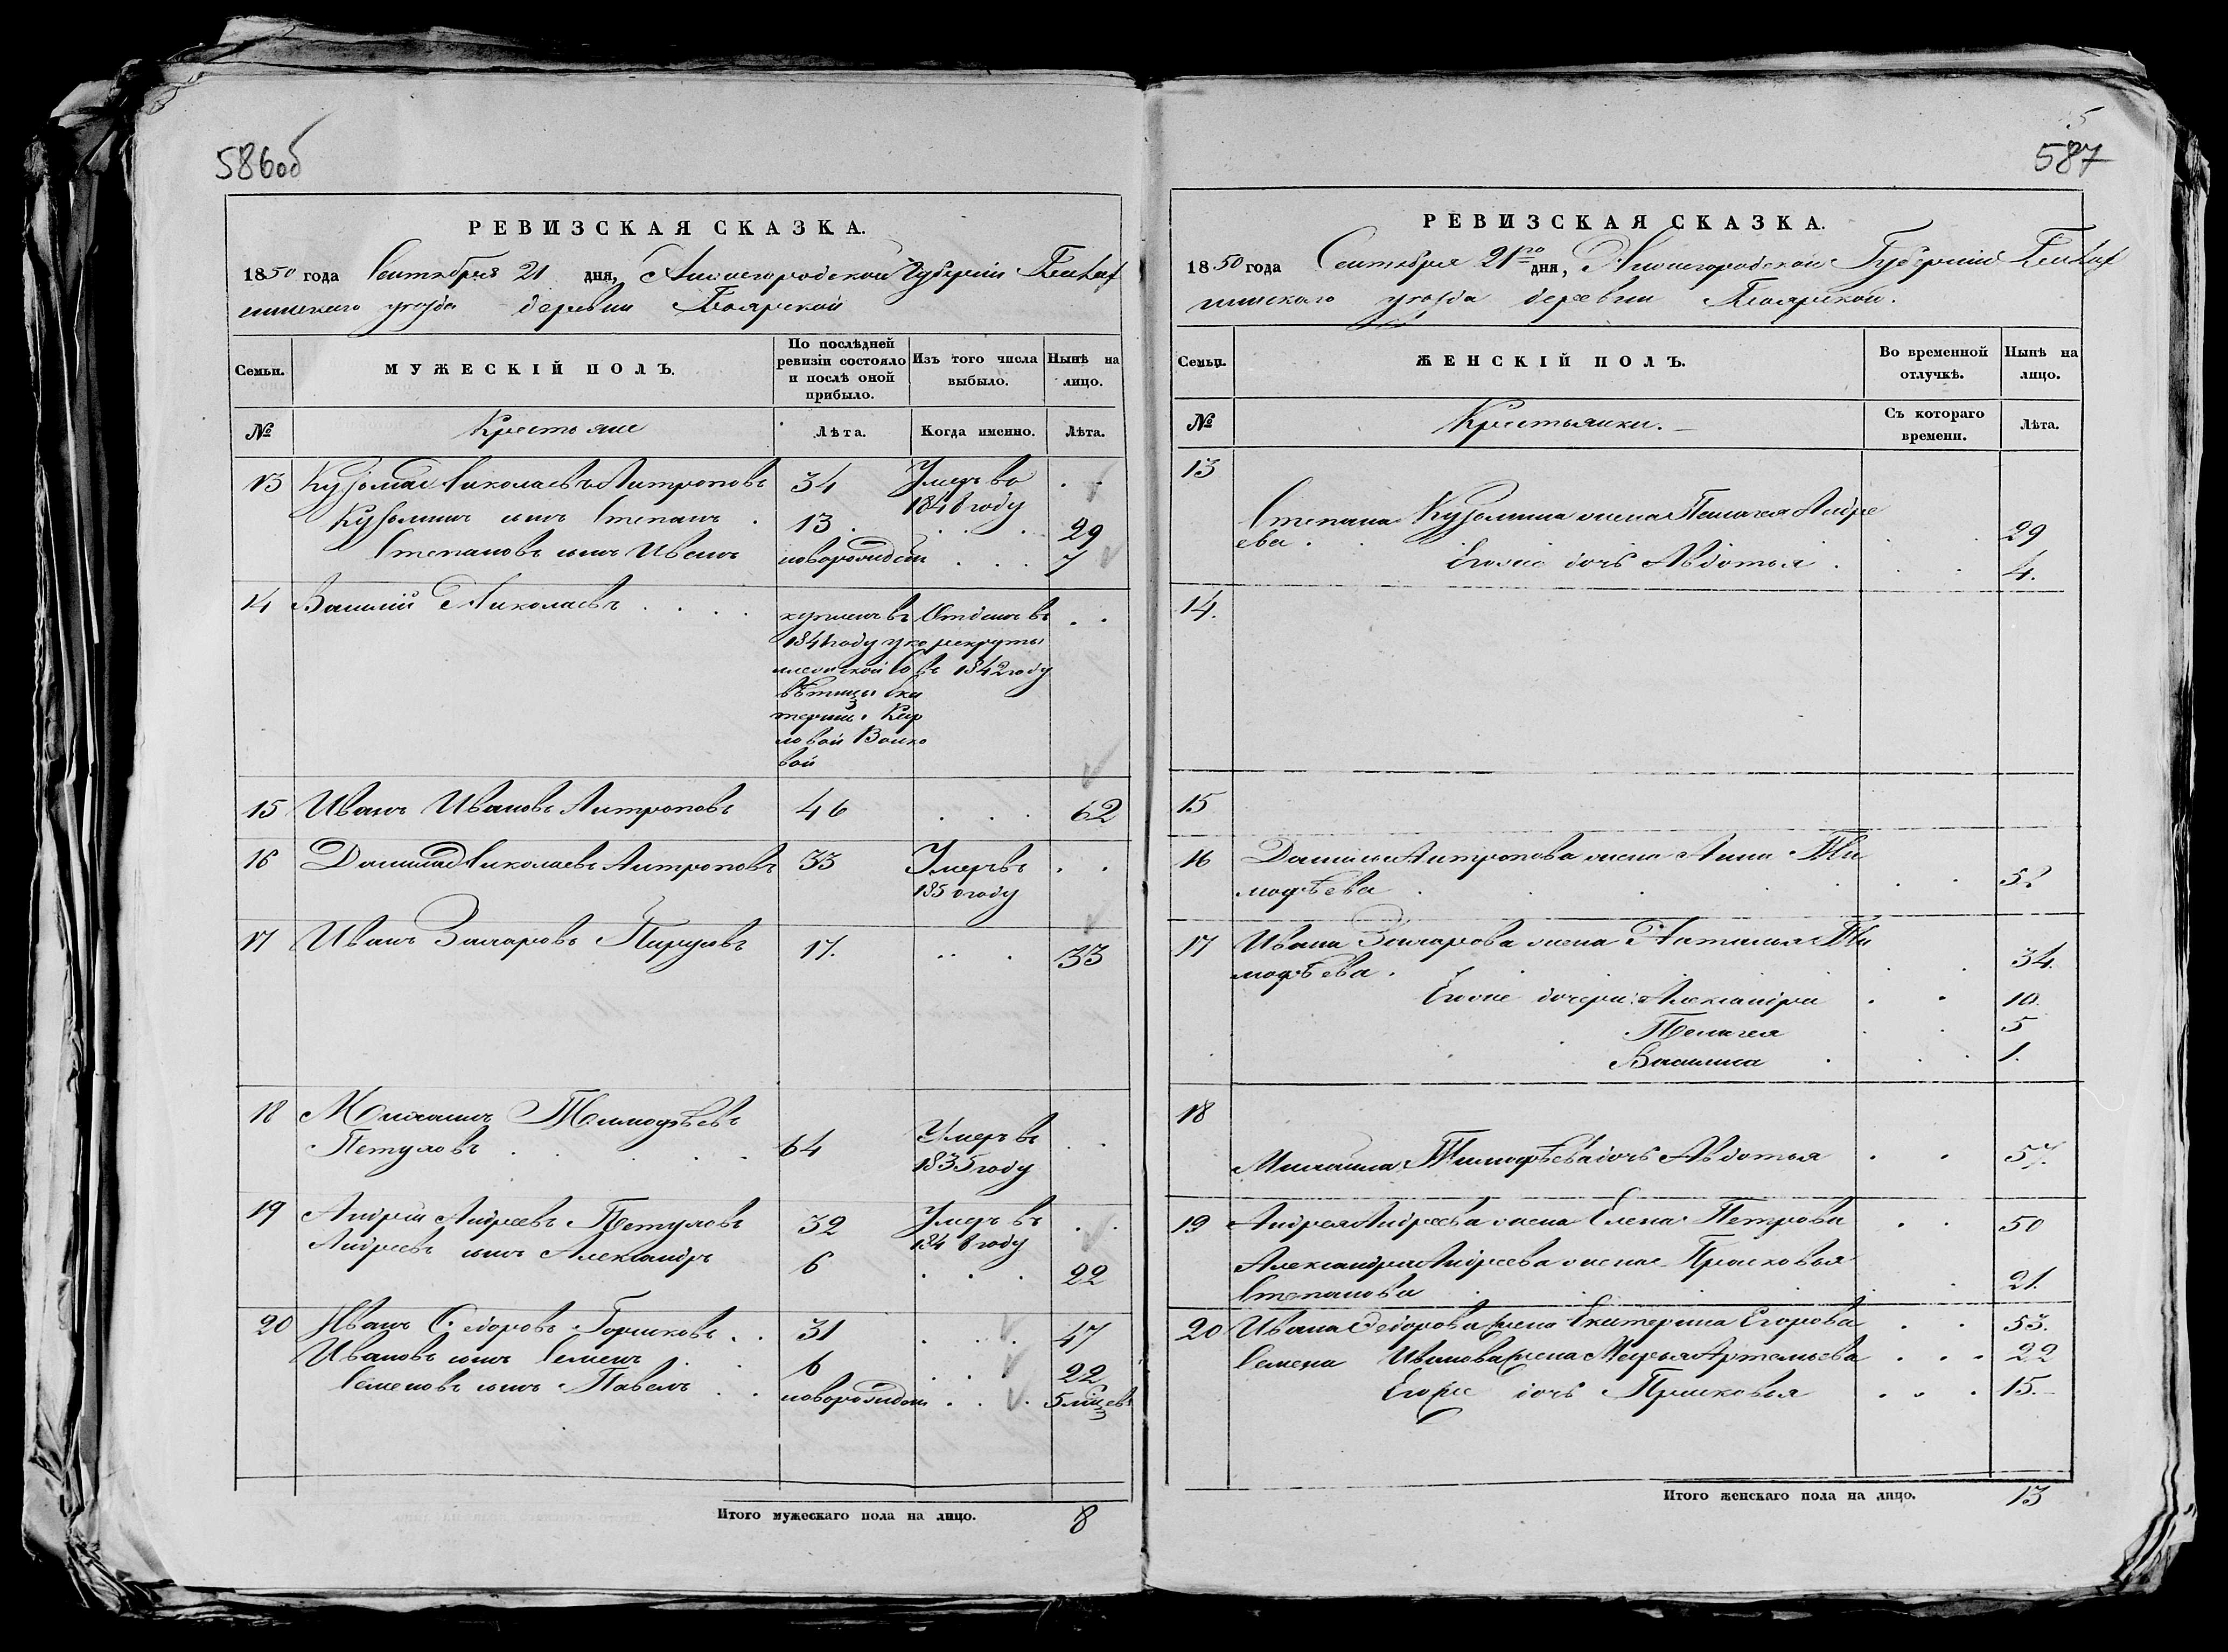 586об
РЕВИЗСКАЯ СКАЗКА.
1850 года Сентября 21 дня, Нижегородской Губернии
уезда деревни Боярской
Семьи.
МУЖЕСКІЙ ПОЛЪ.
По послѣдней ревизіи состояло и послѣ оной прибыло.
Изъ того числа выбыло.
Нынѣ на лицо.
№
Крестьяне
Лѣта.
Когда именно.
Лѣта.
13 Кузьма Николаевъ Антроповъ 34 Умеръ въ . .
1848 году
Кузьминъ сынъ Степанъ . 13 . . . . 29
Степановъ сынъ Иванъ новорожден . . . 7
14 Василий Николаевъ . . . . купленъ въ Отданъ въ . .
1841 году у ко рекруты
ллежской Со въ 1842 году
вѣтницы Ека
терины Кар
ловой
вой
15 Иванъ Ивановъ Антроповъ 46 . . . 62
16 Данила Николаевъ Антроповъ 33 Умеръ въ . .
1850 году
17 Иванъ Захаровъ 17. . . . 33
18 Михаилъ Тимофѣевъ
Петуховъ . . . . 64 Умеръ въ . .
1835 году
19 Андрей Андреевъ Петуховъ 32 Умеръ въ . .
1848 году
Андреевъ сынъ Александръ 6 . . . 22
20 Иванъ Федоровъ Горшковъ . . 31 . . . 47
Ивановъ сынъ Семенъ . . 6 . . . 22
Семеновъ сынъ Павелъ . . новорожден . . . 5 мѣсяцевъ
Итого мужескаго пола на лицо. 8
5
587
РЕВИЗСКАЯ СКАЗКА.
1850 года Сентября 21го дня, Нижегородской Губернии
уезда деревни Боярской.
Семьи.
ЖЕНСКІЙ ПОЛЪ.
Во временной отлучкѣ.
Нынѣ на лицо.
№
Крестьянки.
Съ котораго времени.
Лѣта.
13
Степана Кузьмина жена Пелагея Андре
ева . . . 29
Его же дочь Авдотья . . . 4.
14.
15
16 Данилы Антропова жена Анна Ти
мофѣева . . . 52
17 Ивана Захарова жена Наталья Ти
мофѣева . . . 34.
Его же дочери: Александра . . 10.
Пелагея . . 5
Василиса . . . 1.
18
Михаила Тимофѣева дочь Авдотья . . 57.
19 Андрея Андреева жена Елена Петрова . . 50
Александра Андреева жена Прасковья
Степанова . . . 21.
20 Ивана Федорова жена Екатерина Егорова . . 53.
Семена Иванова жена Марья Артемьева . . . 22
Его же дочь Прасковья . . . 15.
Итого женскаго пола на лицо. 13